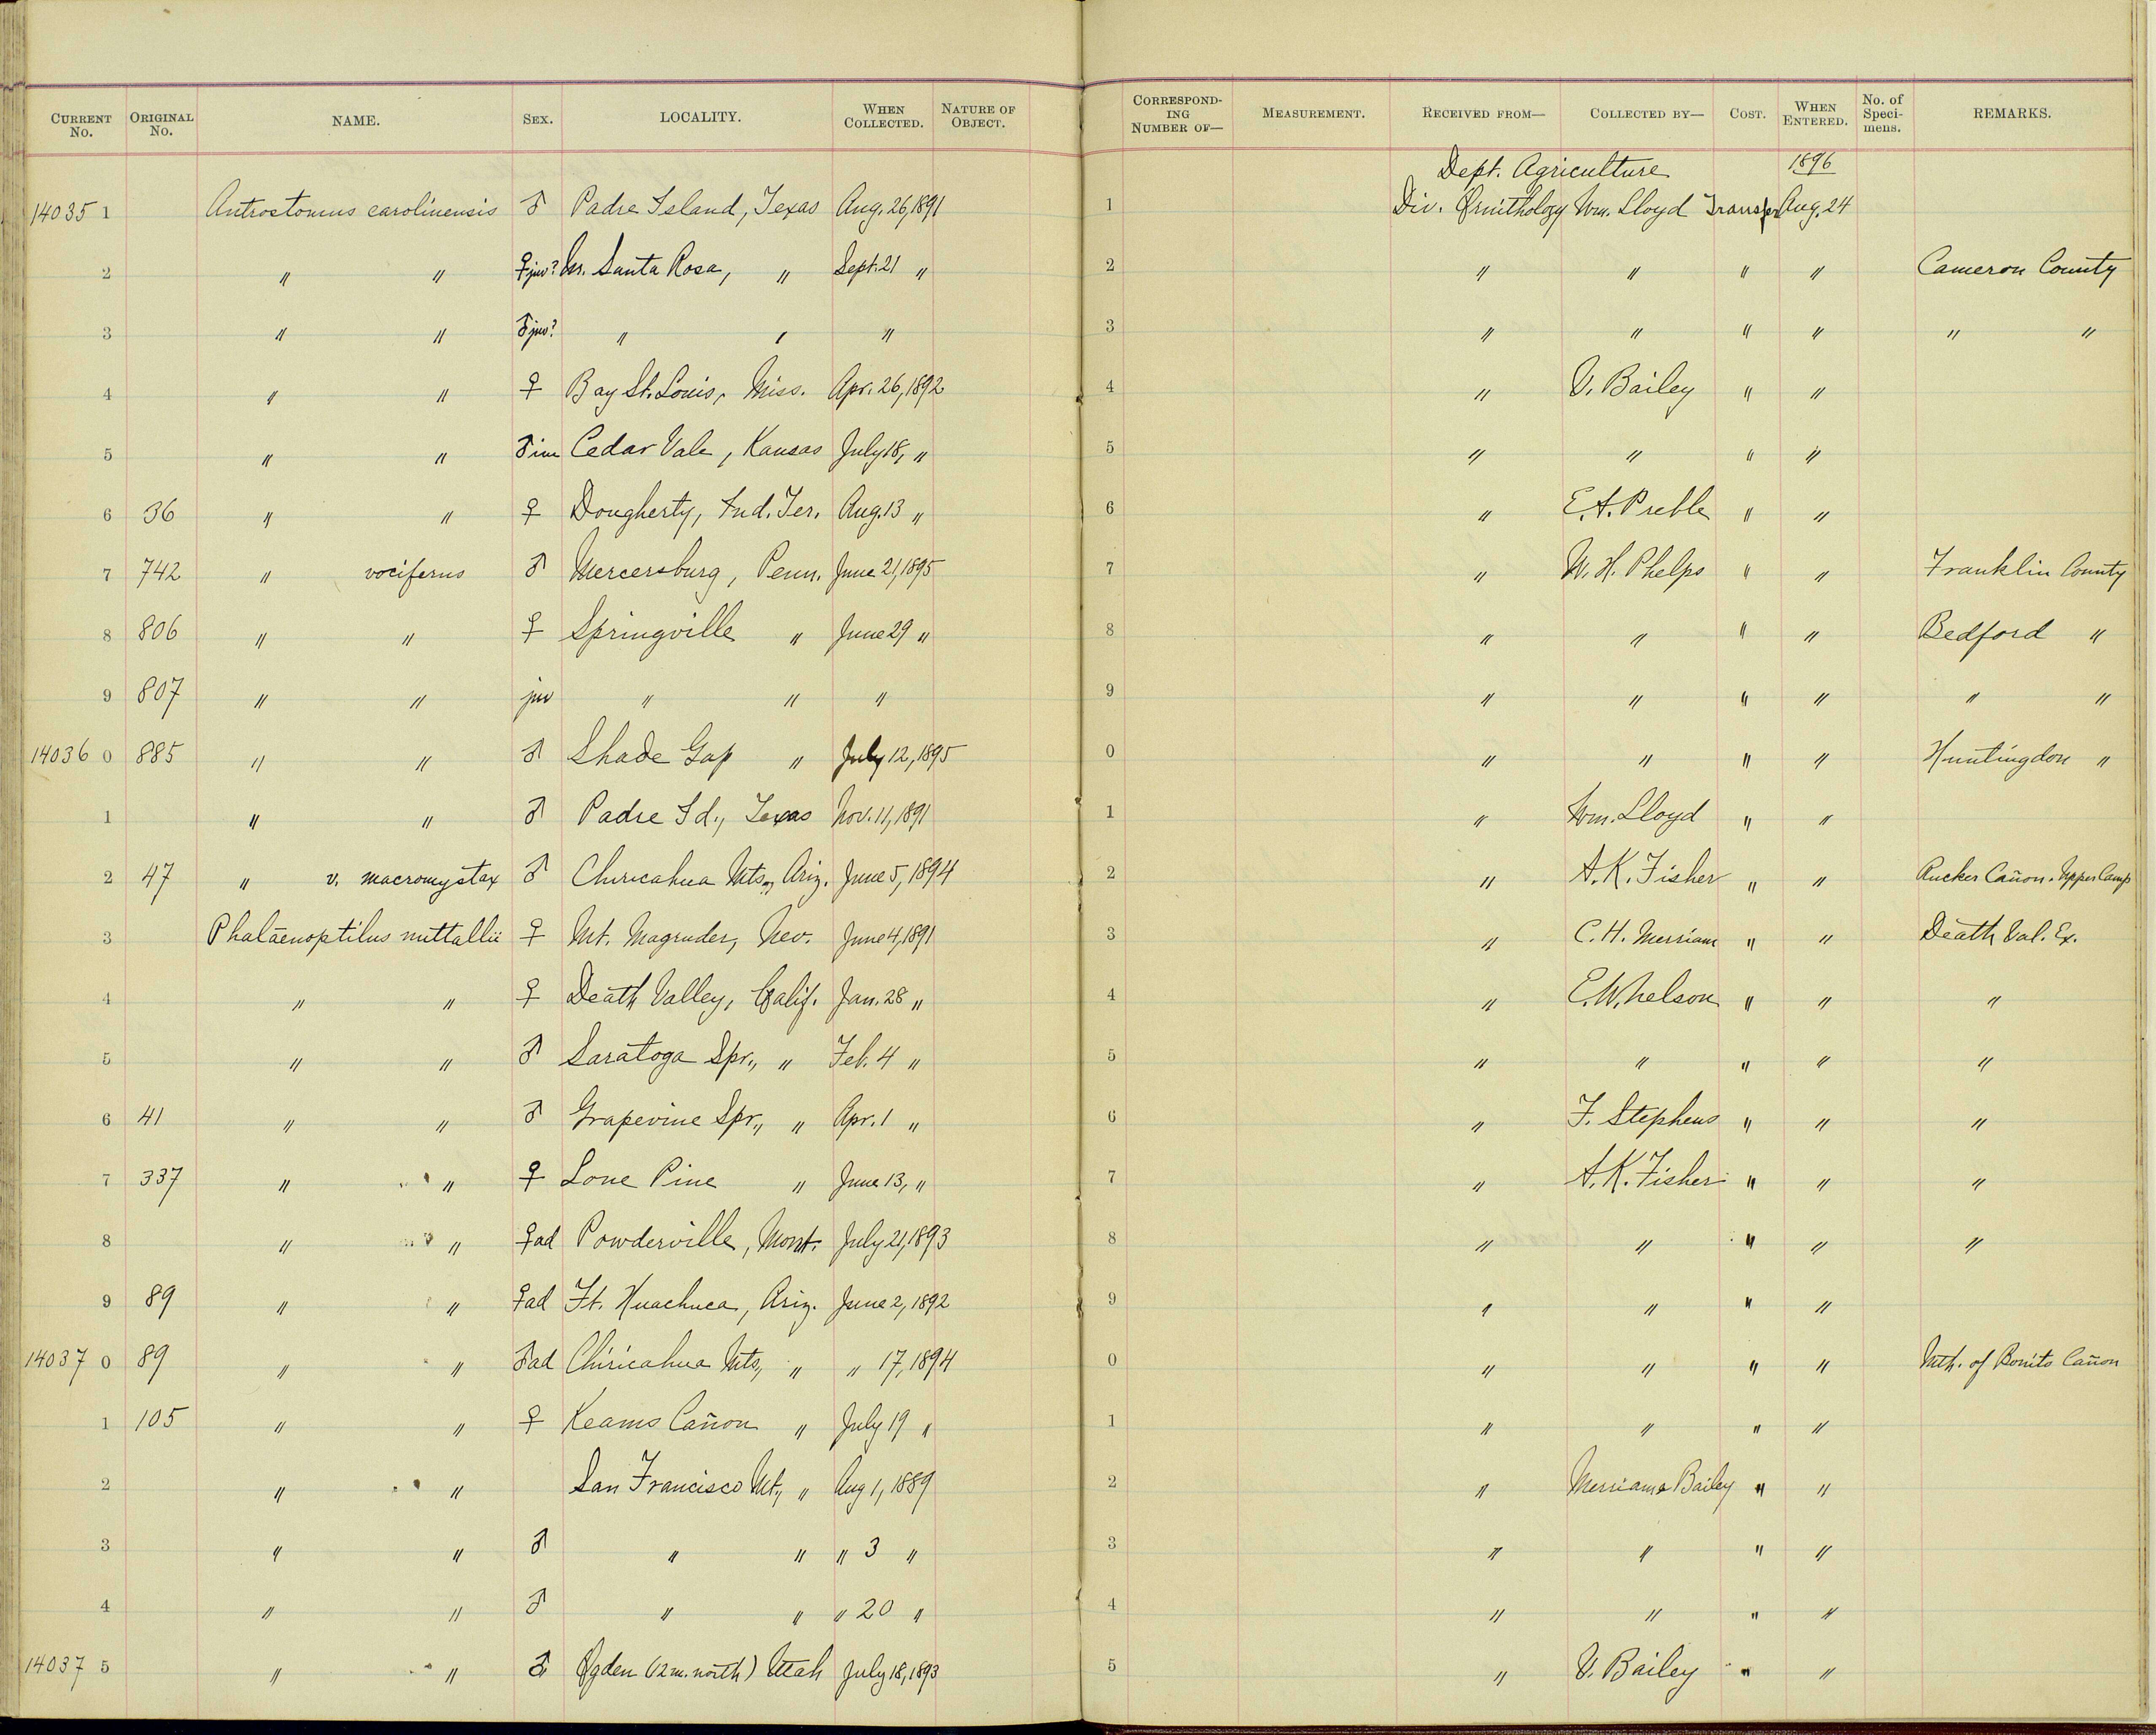 CURRENT No. ORIGINAL No. NAME. SEX. LOCALITY. WHEN COLLECTED. NATURE OF OBJECT. CORRESPONDING NUMBER OF— MEASUREMENT. RECEIVED FROM— COLLECTED BY— COST. WHEN ENTERED. No. of Specimens. REMARKS.
Dept. Agriculture 1896
14035 1 Antrostomus carolinensis ♂ Padre Island, Texas Aug. 26, 1891 1 Div. Ornithology Wm. Lloyd Transfer Aug. 24
2 " " ♀ juv? Nr. Santa Rosa, " Sept. 21 " 2 " " " " Cameron County
3 " " ♂ juv? " " " 3 " " " " " "
4 " " ♀ Bay St. Louis, Miss. Apr. 26, 1892 4 " V. Bailey " "
5 " " ♂ im Cedar Vale, Kansas July 18, " 5 " " " "
6 36 " " ♀ Dougherty, Ind. Ter. Aug. 13 " 6 " E. A. Preble " "
7 742 " vociferus ♂ Mercersburg, Penn. June 21, 1895 7 " W. H. Phelps " " Franklin County
8 806 " " ♀ Springville " June 29 " 8 " " " " Bedford "
9 807 " " juv " " " 9 " " " " " "
14036 0 885 " " ♂ Shade Gap " July 12, 1895 0 " " " " Huntingdon "
1 " " ♂ Padre Id., Texas Nov. 11, 1891 1 " Wm. Lloyd " "
2 47 " v. macromystax ♂ Chiricahua Mts., Ariz. June 5, 1894 2 " A. K. Fisher " " Rucker Cañon. Upper Camp
3 Phalaenoptilus nuttallii ♀ Mt. Magruder, Nev. June 4, 1891 3 " C. H. Merriam " " Death Val. Ex.
4 " " ♀ Death Valley, Calif. Jan. 28 " 4 " E. W. Nelson " " "
5 " " ♂ Saratoga Spr., " Feb. 4 " 5 " " " " "
6 41 " " ♂ Grapevine Spr., " Apr. 1 " 6 " F. Stephens " " "
7 337 " " ♀ Lone Pine " June 13, " 7 " A. K. Fisher " " "
8 " " ♀ ad Powderville, Mont. July 21, 1893 8 " " " " "
9 89 " " ♀ ad Ft. Huachuca, Ariz. June 2, 1892 9 " " " "
14037 0 89 " " ♂ ad Chiricahua Mts., " " 17, 1894 0 " " " " Mth. of Bonito Cañon
1 105 " " ♀ Keams Cañon " July 19 " 1 " " " "
2 " " San Francisco Mt., " Aug 1, 1889 2 " Merriam & Bailey " "
3 " " ♂ " " " 3 " 3 " " " "
4 " " ♂ " " " 20 " 4 " " " "
14037 5 " " ♂ Ogden (12 m. north) Utah July 18, 1893 5 " V. Bailey " "